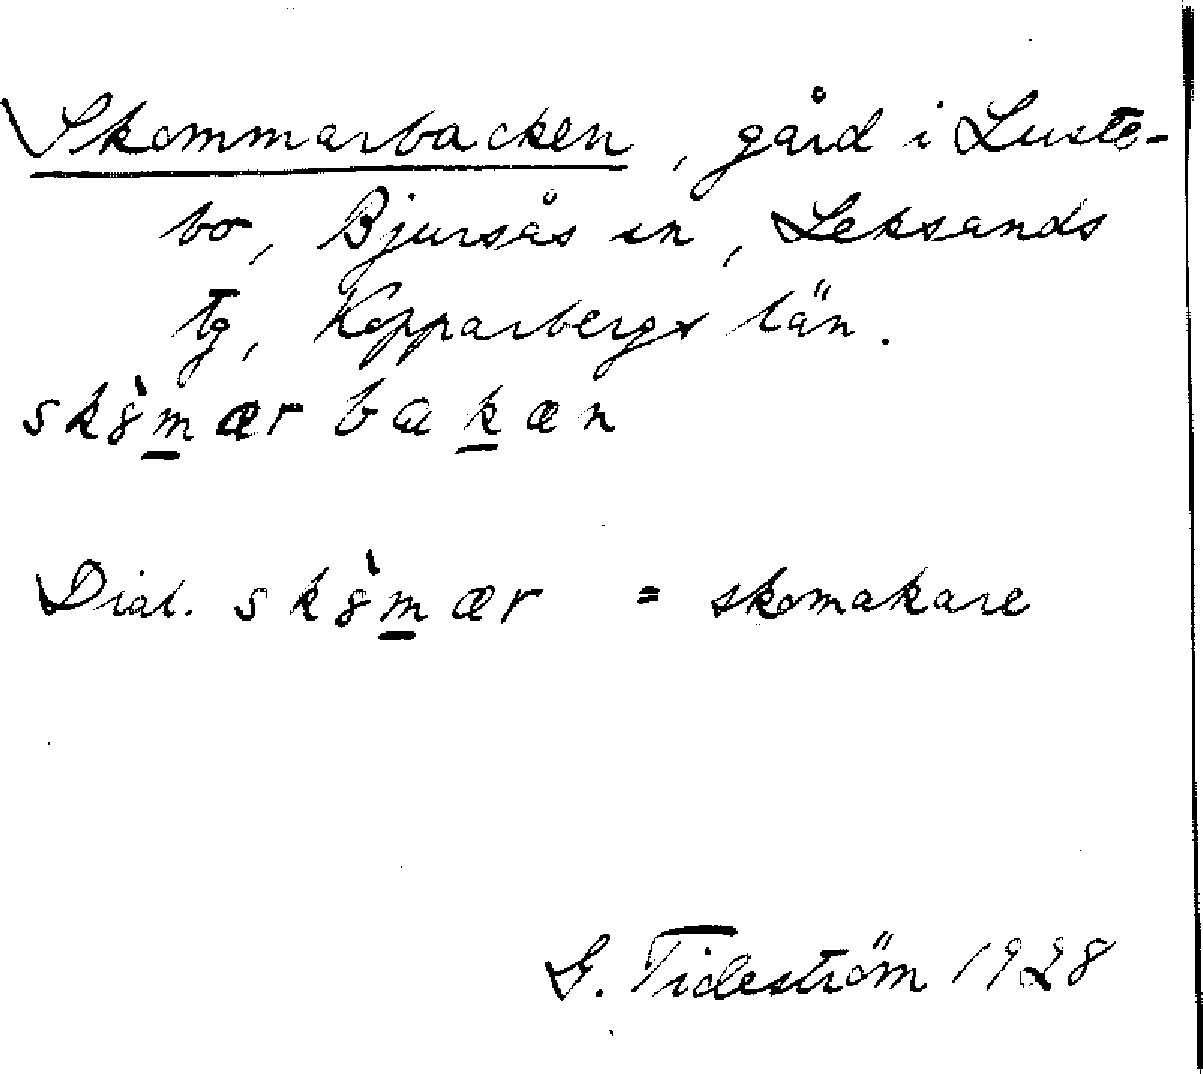 Skommarbacken, gård i Luste-
bo, Bjursås sn, Leksands
tg, Kopparbergs län.
sk8̀m̲ær bak̲æn
Dial. sk8̀m̲ær = skomakare
G. Tideström 1928